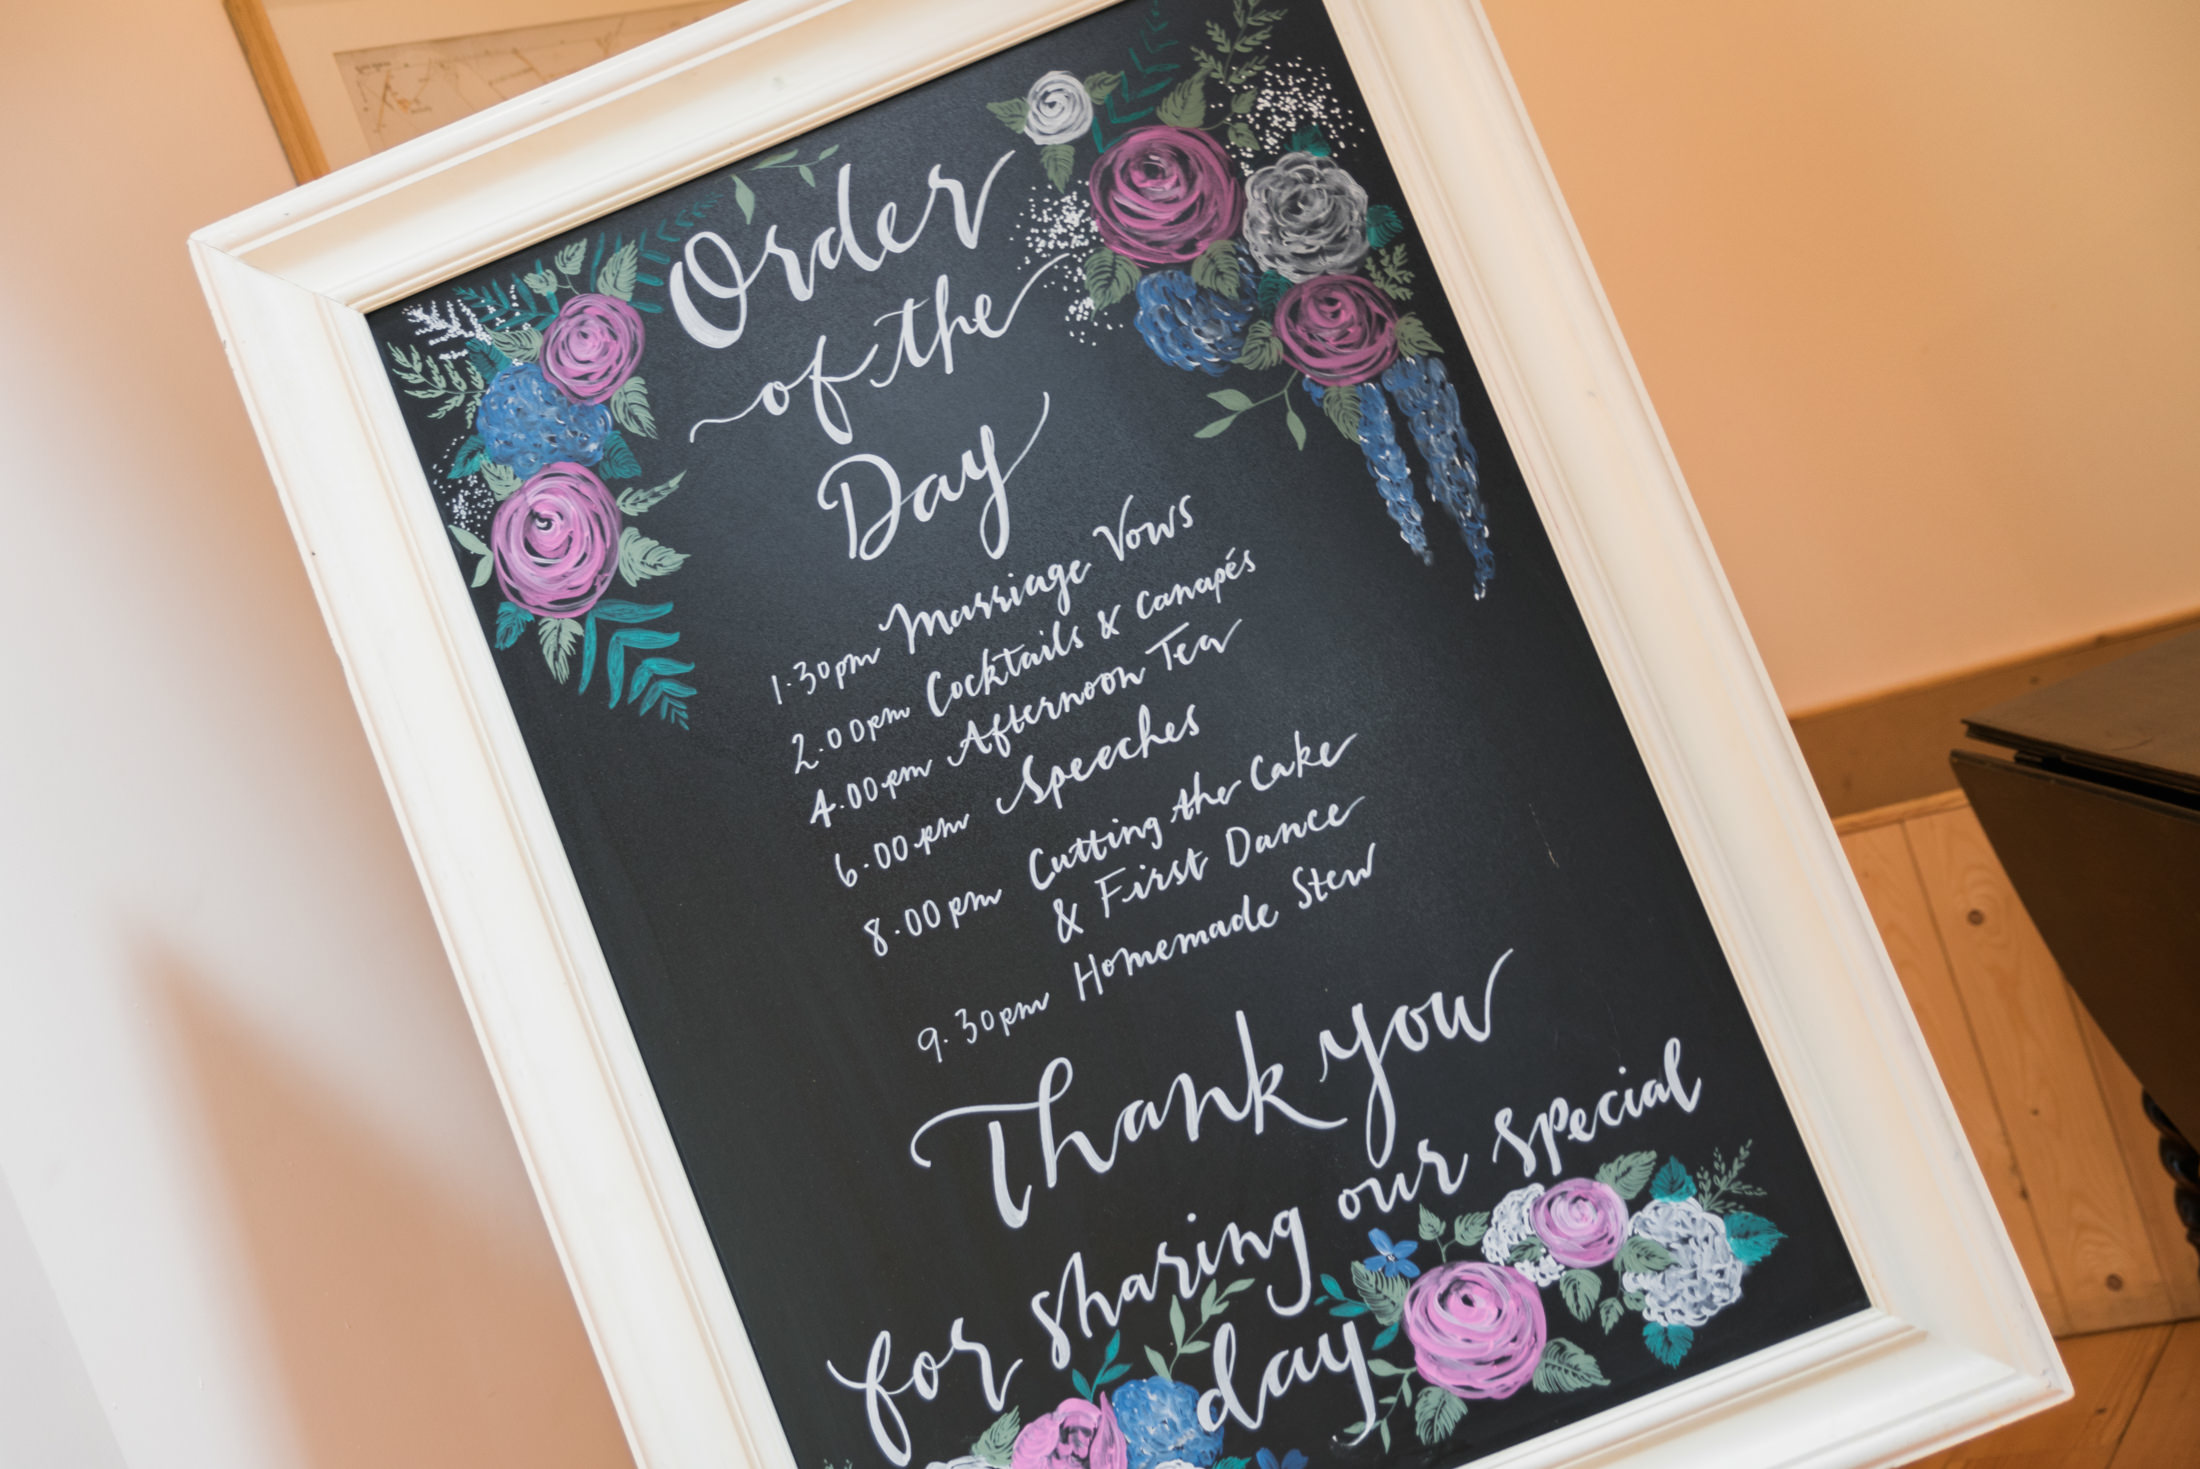 Order
of the
Day
1.30pm Marriage Vows
2.00pm Cocktails & Canapés
4.00pm Afternoon Tea
6.00pm Speeches
8.00pm Cutting the Cake
& First Dance
9.30pm Homemade Stew
Thank you
for sharing our special
day